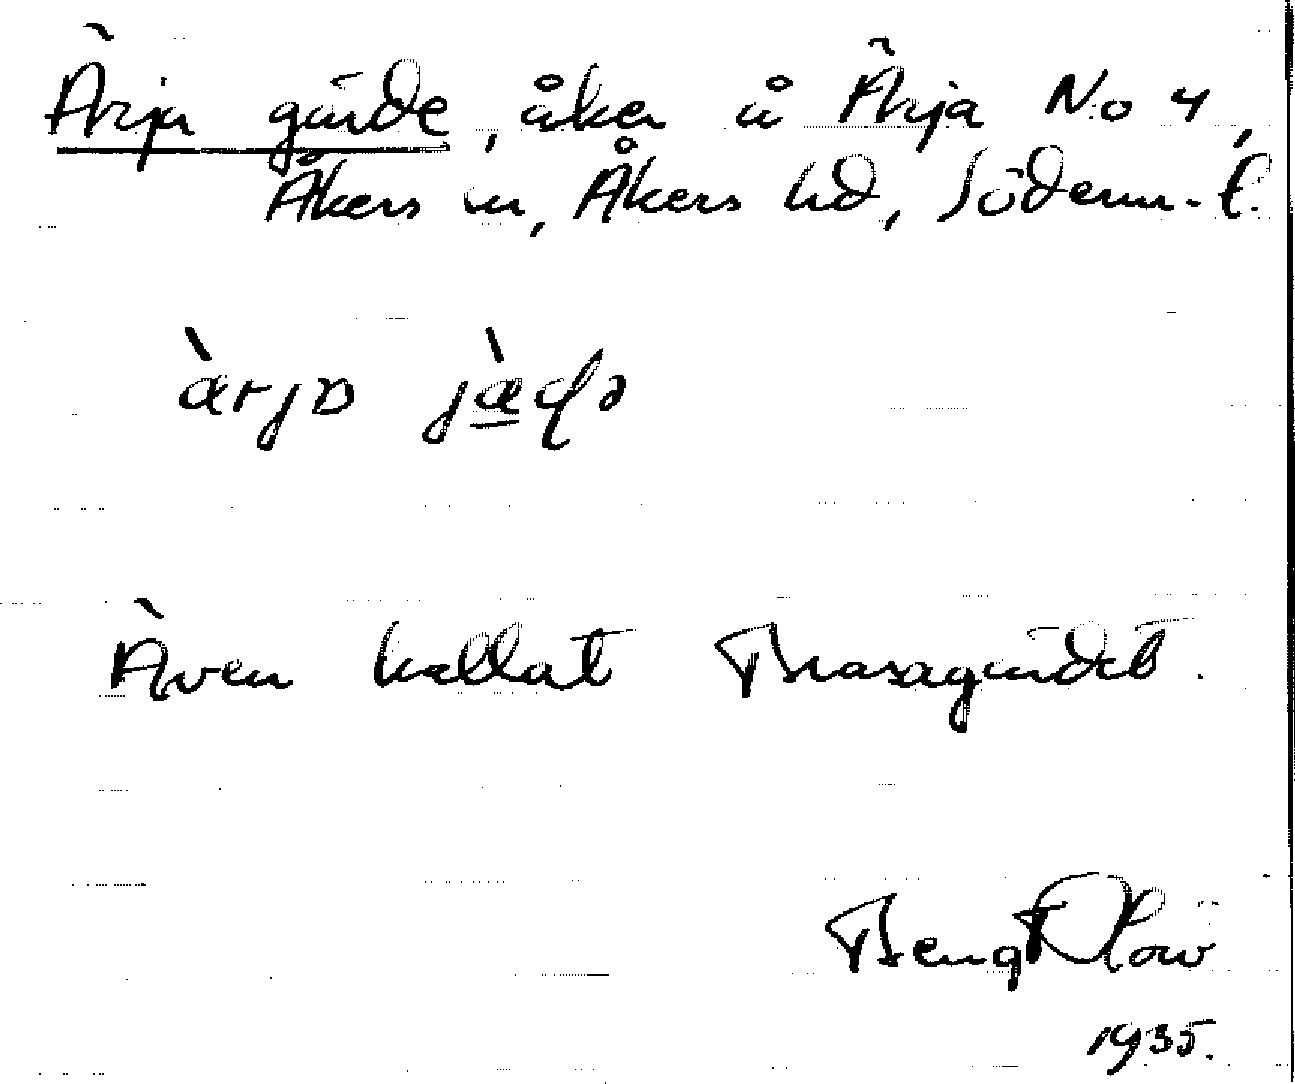 Ärja gärde, åker å Ärja No 4,
Åkers sn, Åkers hd, Söderm. l.
àrjɒ jæ̀ɖə
Även kallat Brasagärdet.
Bengt Olow
1935.